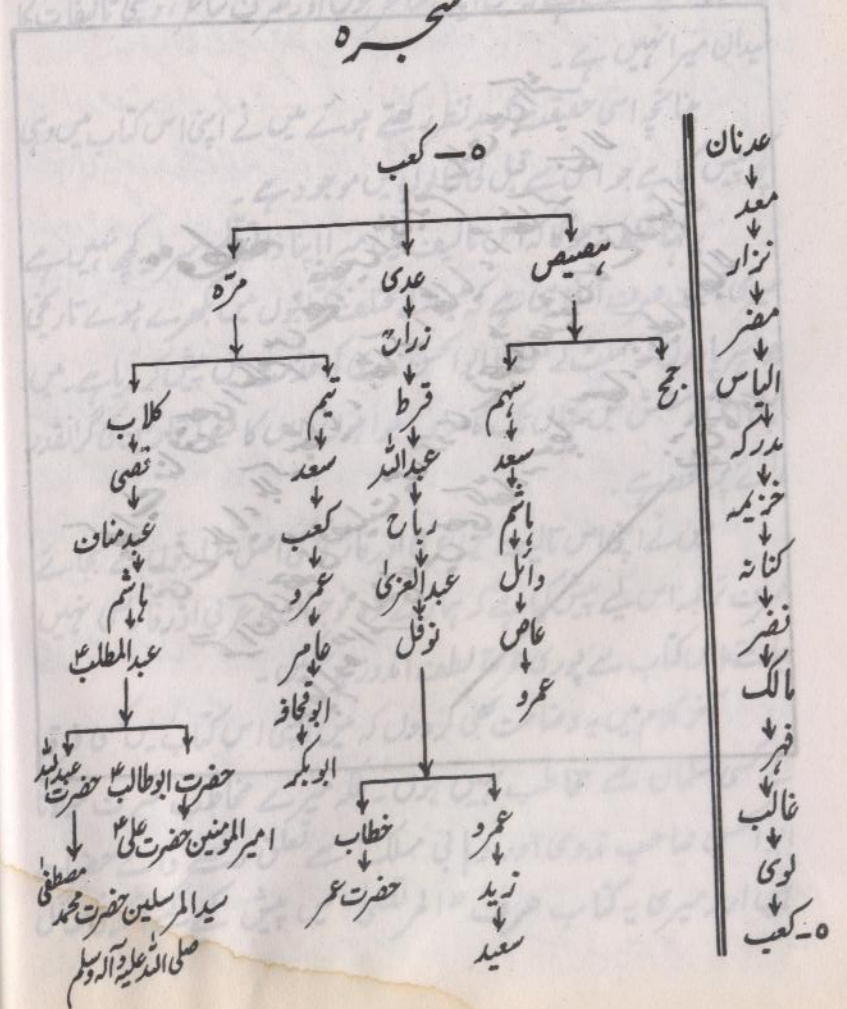 شجرہ
عدنان
معد
نزار
مضر
الیاس
مدرکہ
خزیمہ
کنانہ
نضر
مالک
فہر
غالب
لوی
۵-کعب
۵-کعب
ہصیص
عدی
مرّہ
جمح
سہم
سعد
ہاشم
وائل
عاص
عمرو
قرط
عبداللہ
رباح
عبدالعزیٰ
نوفل
عمرو
زید
سعید
خطاب
حضرت عمر
تیم
سعد
کعب
عمرو
عامر
ابوقحافہ
ابوبکر
کلاب
قصی
عبدمناف
ہاشم
عبدالمطلبؑ
حضرت ابوطالبؑ
امیرالمومنین حضرت علیؑ
حضرت عبداللہ
سیدالمرسلین حضرت محمد مصطفیٰ
صلی اللہ علیہ وآلہ وسلم